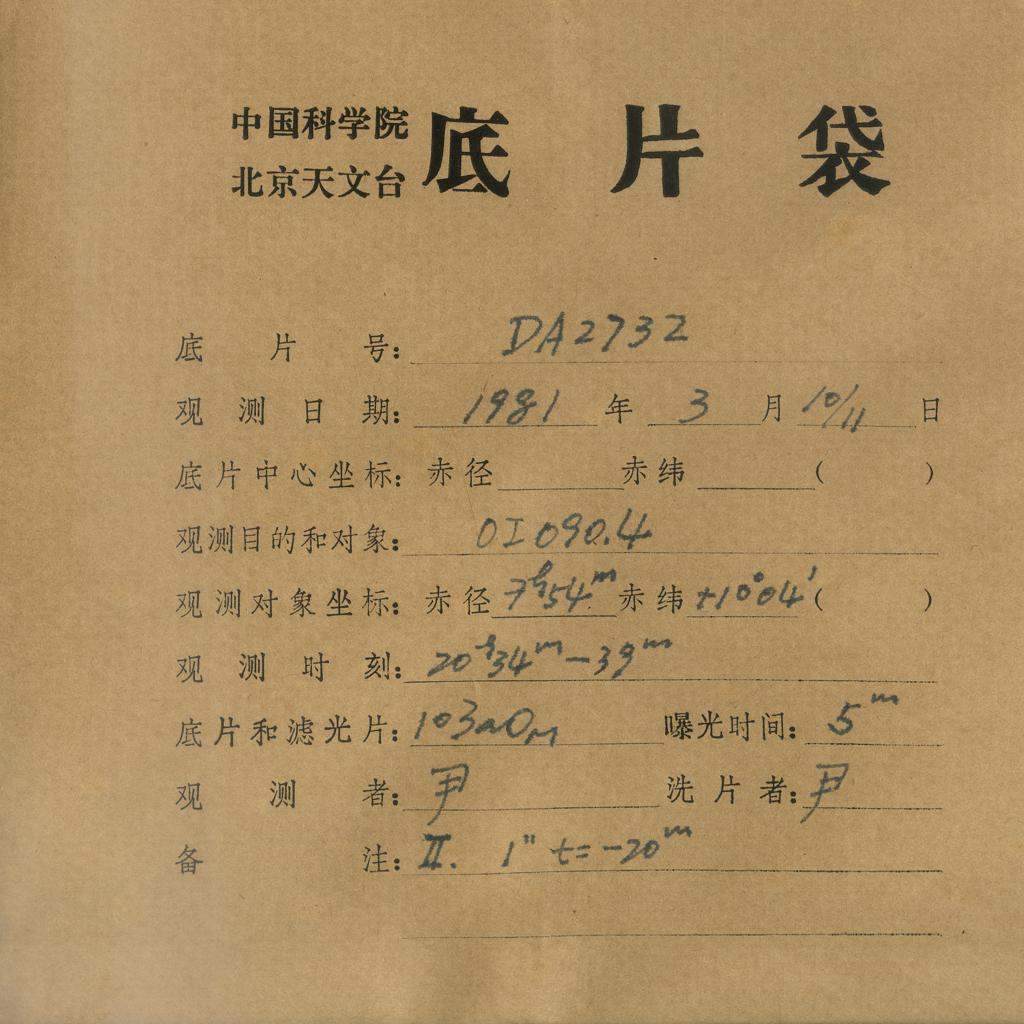 中国科学院
北京天文台
底片袋
底片号: DA2732
观测日期: 1981 年 3 月 10/11 日
底片中心坐标: 赤径 赤纬 ( )
观测目的和对象: OI 090.4
观测对象坐标: 赤径 7h54m 赤纬 +10°04′ ( )
观测时刻: 20h34m-39m
底片和滤光片: 103aOM 曝光时间: 5m
观测者: 尹 洗片者: 尹
备注: II. 1" t=-20m